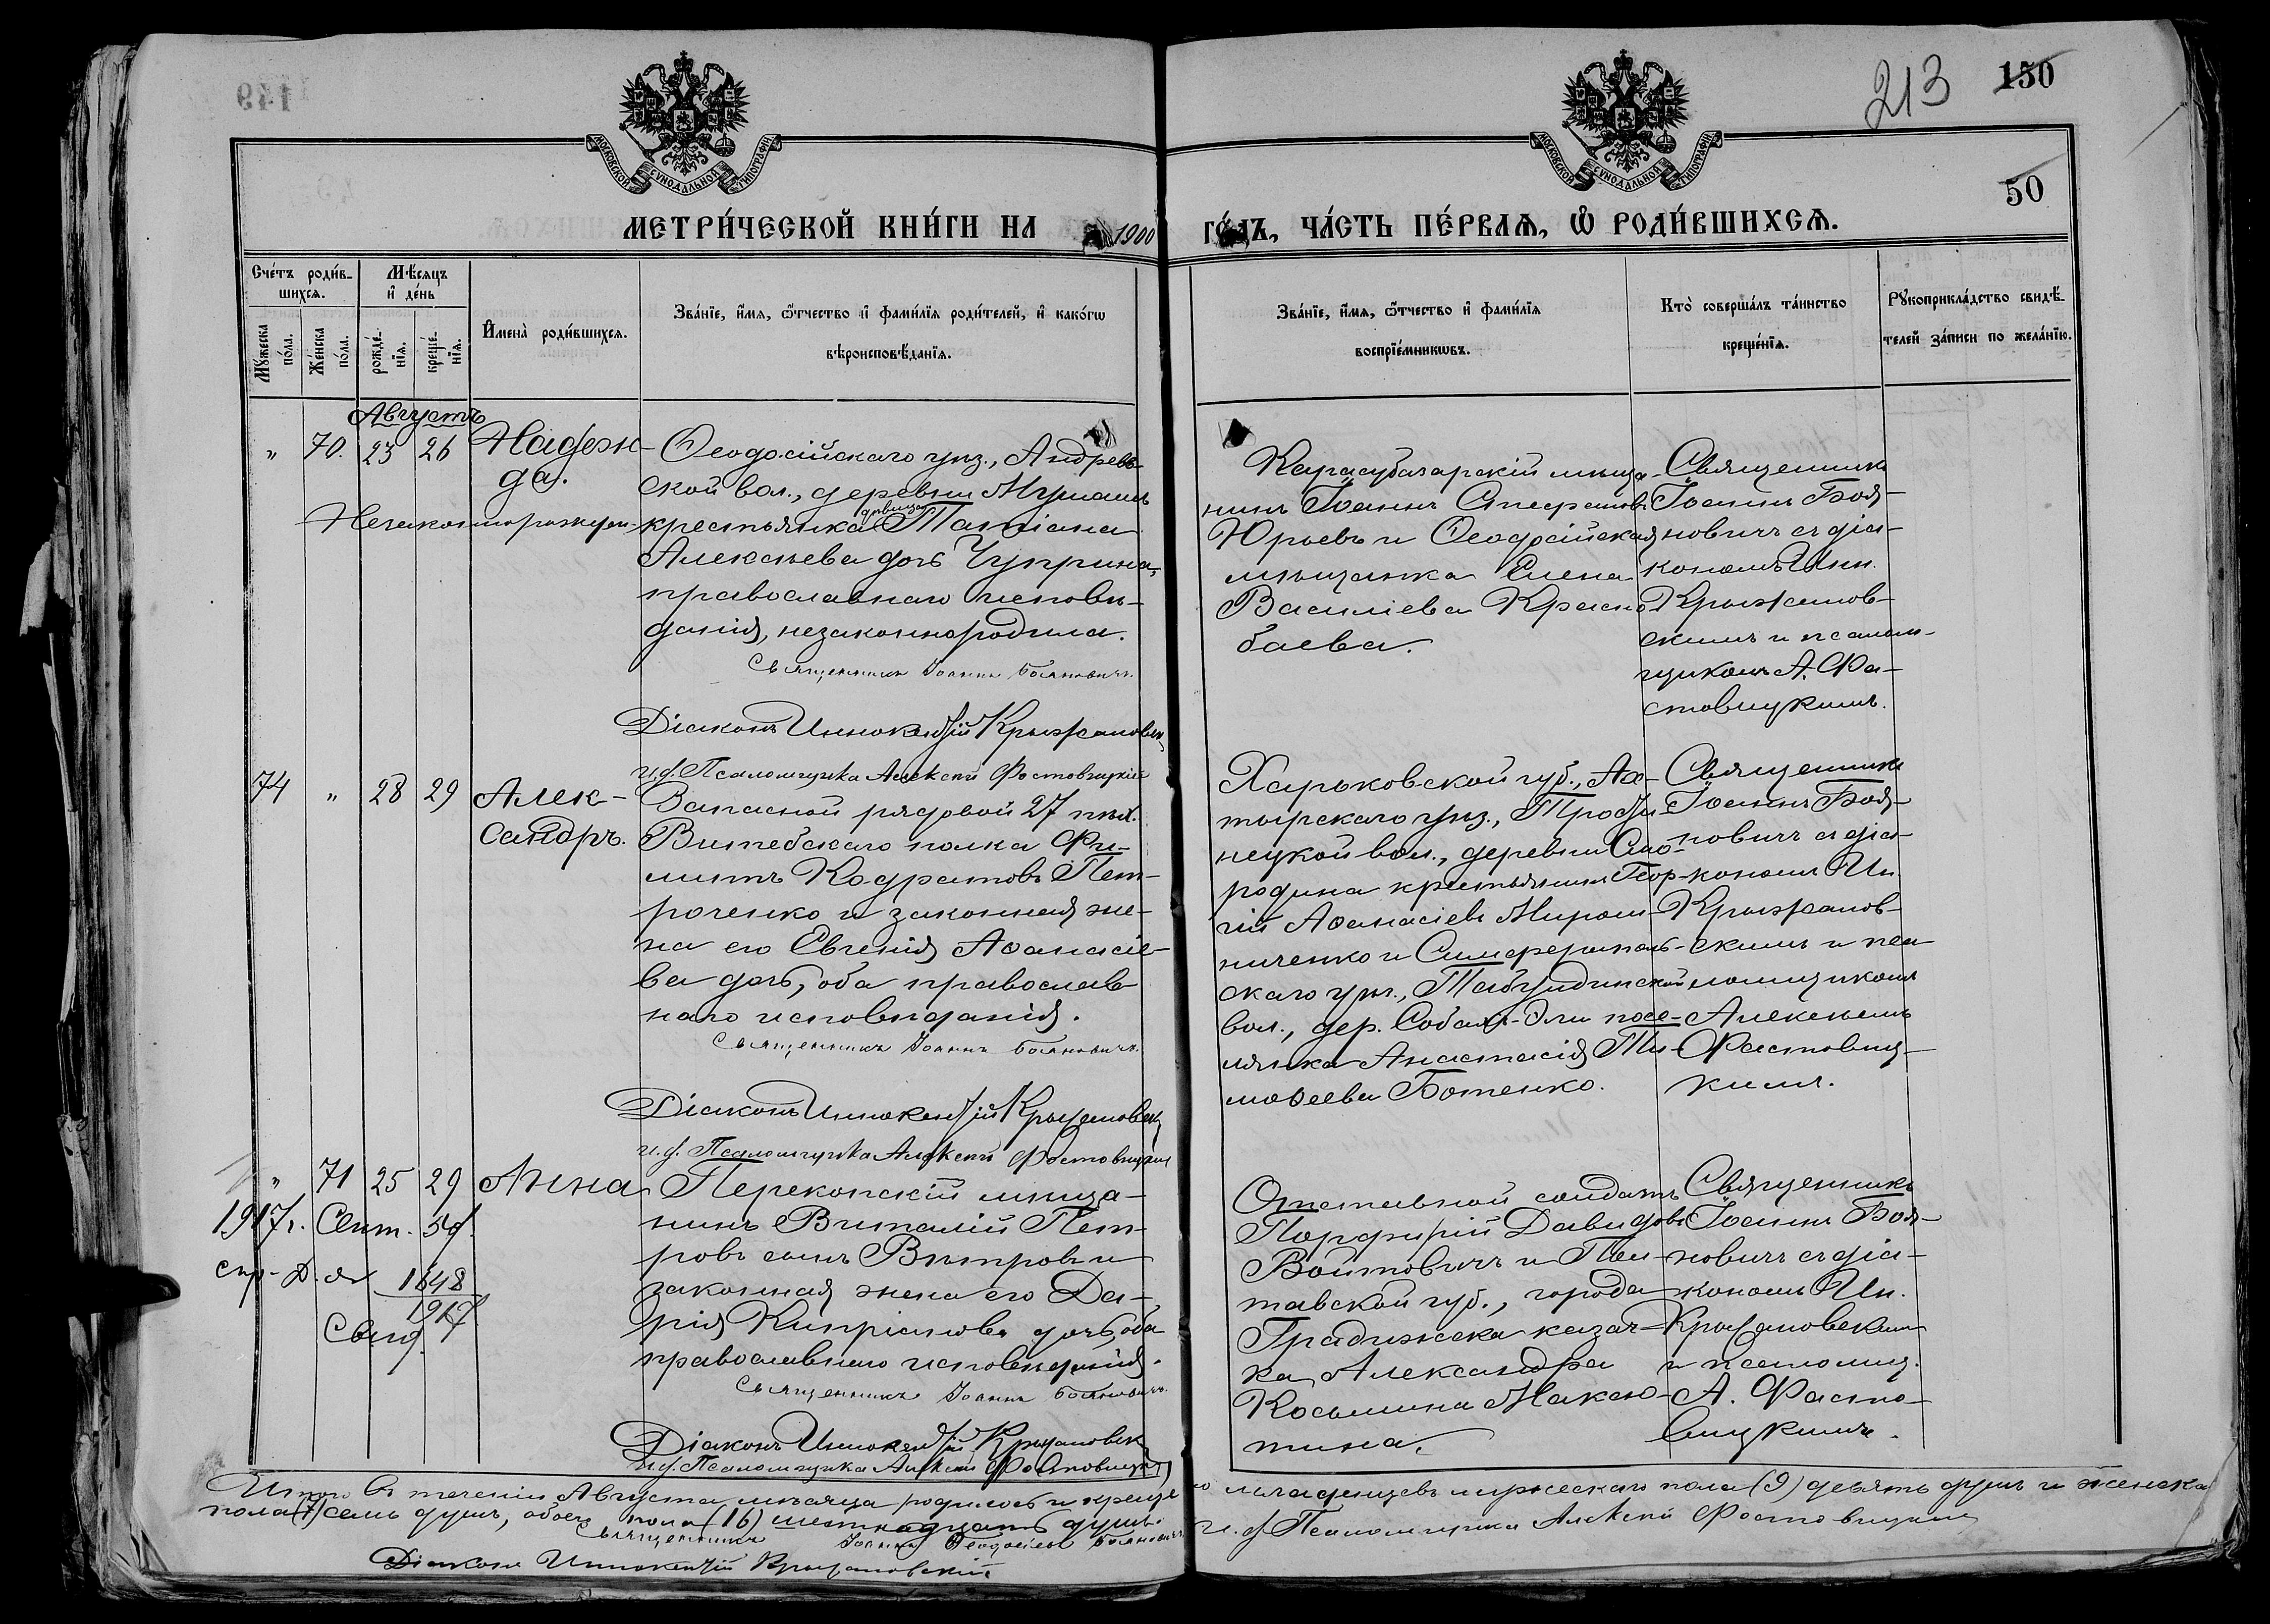 213 150
50
МОСКОВСКОЙ СУНОДАЛЬНОЙ ТИПОГРАФІИ
МОСКОВСКОЙ СУНОДАЛЬНОЙ ТИПОГРАФІИ
МЕТРИ́ЧЕСКОЙ КНИ́ГИ НА 1900 ГО́ДЪ, ЧА́СТЬ ПЕ́РВАѦ, Ѡ҆ РОДИ́ВШИХСѦ.
Сче́тъ роди́в-
шихсѧ.
Мꙋ́жеска по́ла.
Же́нска по́ла.
Мѣ́сѧцъ
и҆ де́нь
рожде́-нїѧ.
креще́-нїѧ.
И҆мена̀ роди́вшихсѧ.
Зва́нїе, и҆́мѧ, ѻ҆́тчество и҆ фами́лїѧ роди́телей, и҆ како́гѡ
вѣроисповѣ́данїѧ.
Зва́нїе, и҆́мѧ, ѻ҆́тчество и҆ фами́лїѧ
воспрїе́мникѡвъ.
Кто̀ соверша́лъ та́инство
креще́нїѧ.
Рꙋкоприкла́дство свидѣ́-
телей за́писи по жела́нїю.
Августъ
" 70. 23 26 Надеж-
да.
Незаконнорожден.
Ѳеодосійскаго уѣз., Андреев-
ской вол., деревни
крестьянка девица Татіана
Алексѣева дочь Чуприна,
православнаго исповѣ-
данія, незаконнородила.
Священникъ Іоаннъ Бояновичъ.
Діаконъ Иннокентій Крыжановскій
и.д. Псаломщика Алексѣй Фастовицкій
Карасубазарскій мѣща-
нинъ Іоаннъ Стефановъ
Юрьевъ и Ѳеодосійская
мѣщанка Елена
Василіева Красно-
баева.
Священникъ
Іоаннъ Боя-
новичъ съ діа-
кономъ Инн.
Крыжанов-
скимъ и псалом-
щикомъ А. Фа-
стовицкимъ.
74 " 28 29 Алек-
сандръ.
Запасной рядовой 27 пѣх.
Витебскаго полка Фи-
липпъ Кодратовъ Пет-
роченко и законная же-
на его Евгенія Аѳанасіе-
ва дочь, оба православ-
наго исповѣданія.
Священникъ Іоаннъ Бояновичъ.
Діаконъ Иннокентій Крыжановскій
и.д. Псаломщика Алексѣй Фастовицкій
Харьковской губ., Ах-
тырскаго уѣз., Тростя-
нецкой вол., деревни Смо-
родина крестьянинъ Геор-
гій Аѳанасіевъ Мирош-
ниченко и Симферополь-
скаго уѣз., Табулдинской
вол., дер. посе-
лянка Анастасія Ти-
моѳеева Ботенко.
Священникъ
Іоаннъ Боя-
новичъ съ діа-
кономъ Ин.
Крыжанов-
скимъ и пса-
ломщикомъ
Алексѣемъ
Фастовиц-
кимъ.
" 71 25 29 Анна
1917г. Сент. 5д.
1648
1917
Свид.
Перекопскій мѣща-
нинъ Виталій Пет-
ровъ сынъ Вѣтровъ и
законная жена его Да-
рія Кипріанова дочь, оба
православнаго исповѣданія.
Священникъ Іоаннъ Бояновичъ.
Діаконъ Иннокентій Крыжановскій
и.д. Псаломщика Алексѣй Фастовицкій
Отставной солдатъ
Порфирій Давидовъ
Войтовичъ и Пол-
тавской губ., города
Градижска казач-
ка Александра
Косьмина Максю-
тина.
Священникъ
Іоаннъ Боя-
новичъ съ діа-
кономъ Ин.
Крыжановским
и псаломщ.
А. Фасто-
вицкимъ.
Итого въ теченіи Августа мѣсяца родилось и крещено младенцевъ мужескаго пола (9) девять душъ и женска
пола (7) семь душъ, обоего пола (16) шестнадцать душъ.
Священникъ Іоаннъ Бояновичъ и.д. Псаломщика Алексѣй Фастовицкій
Діаконъ Иннокентій Крыжановскій